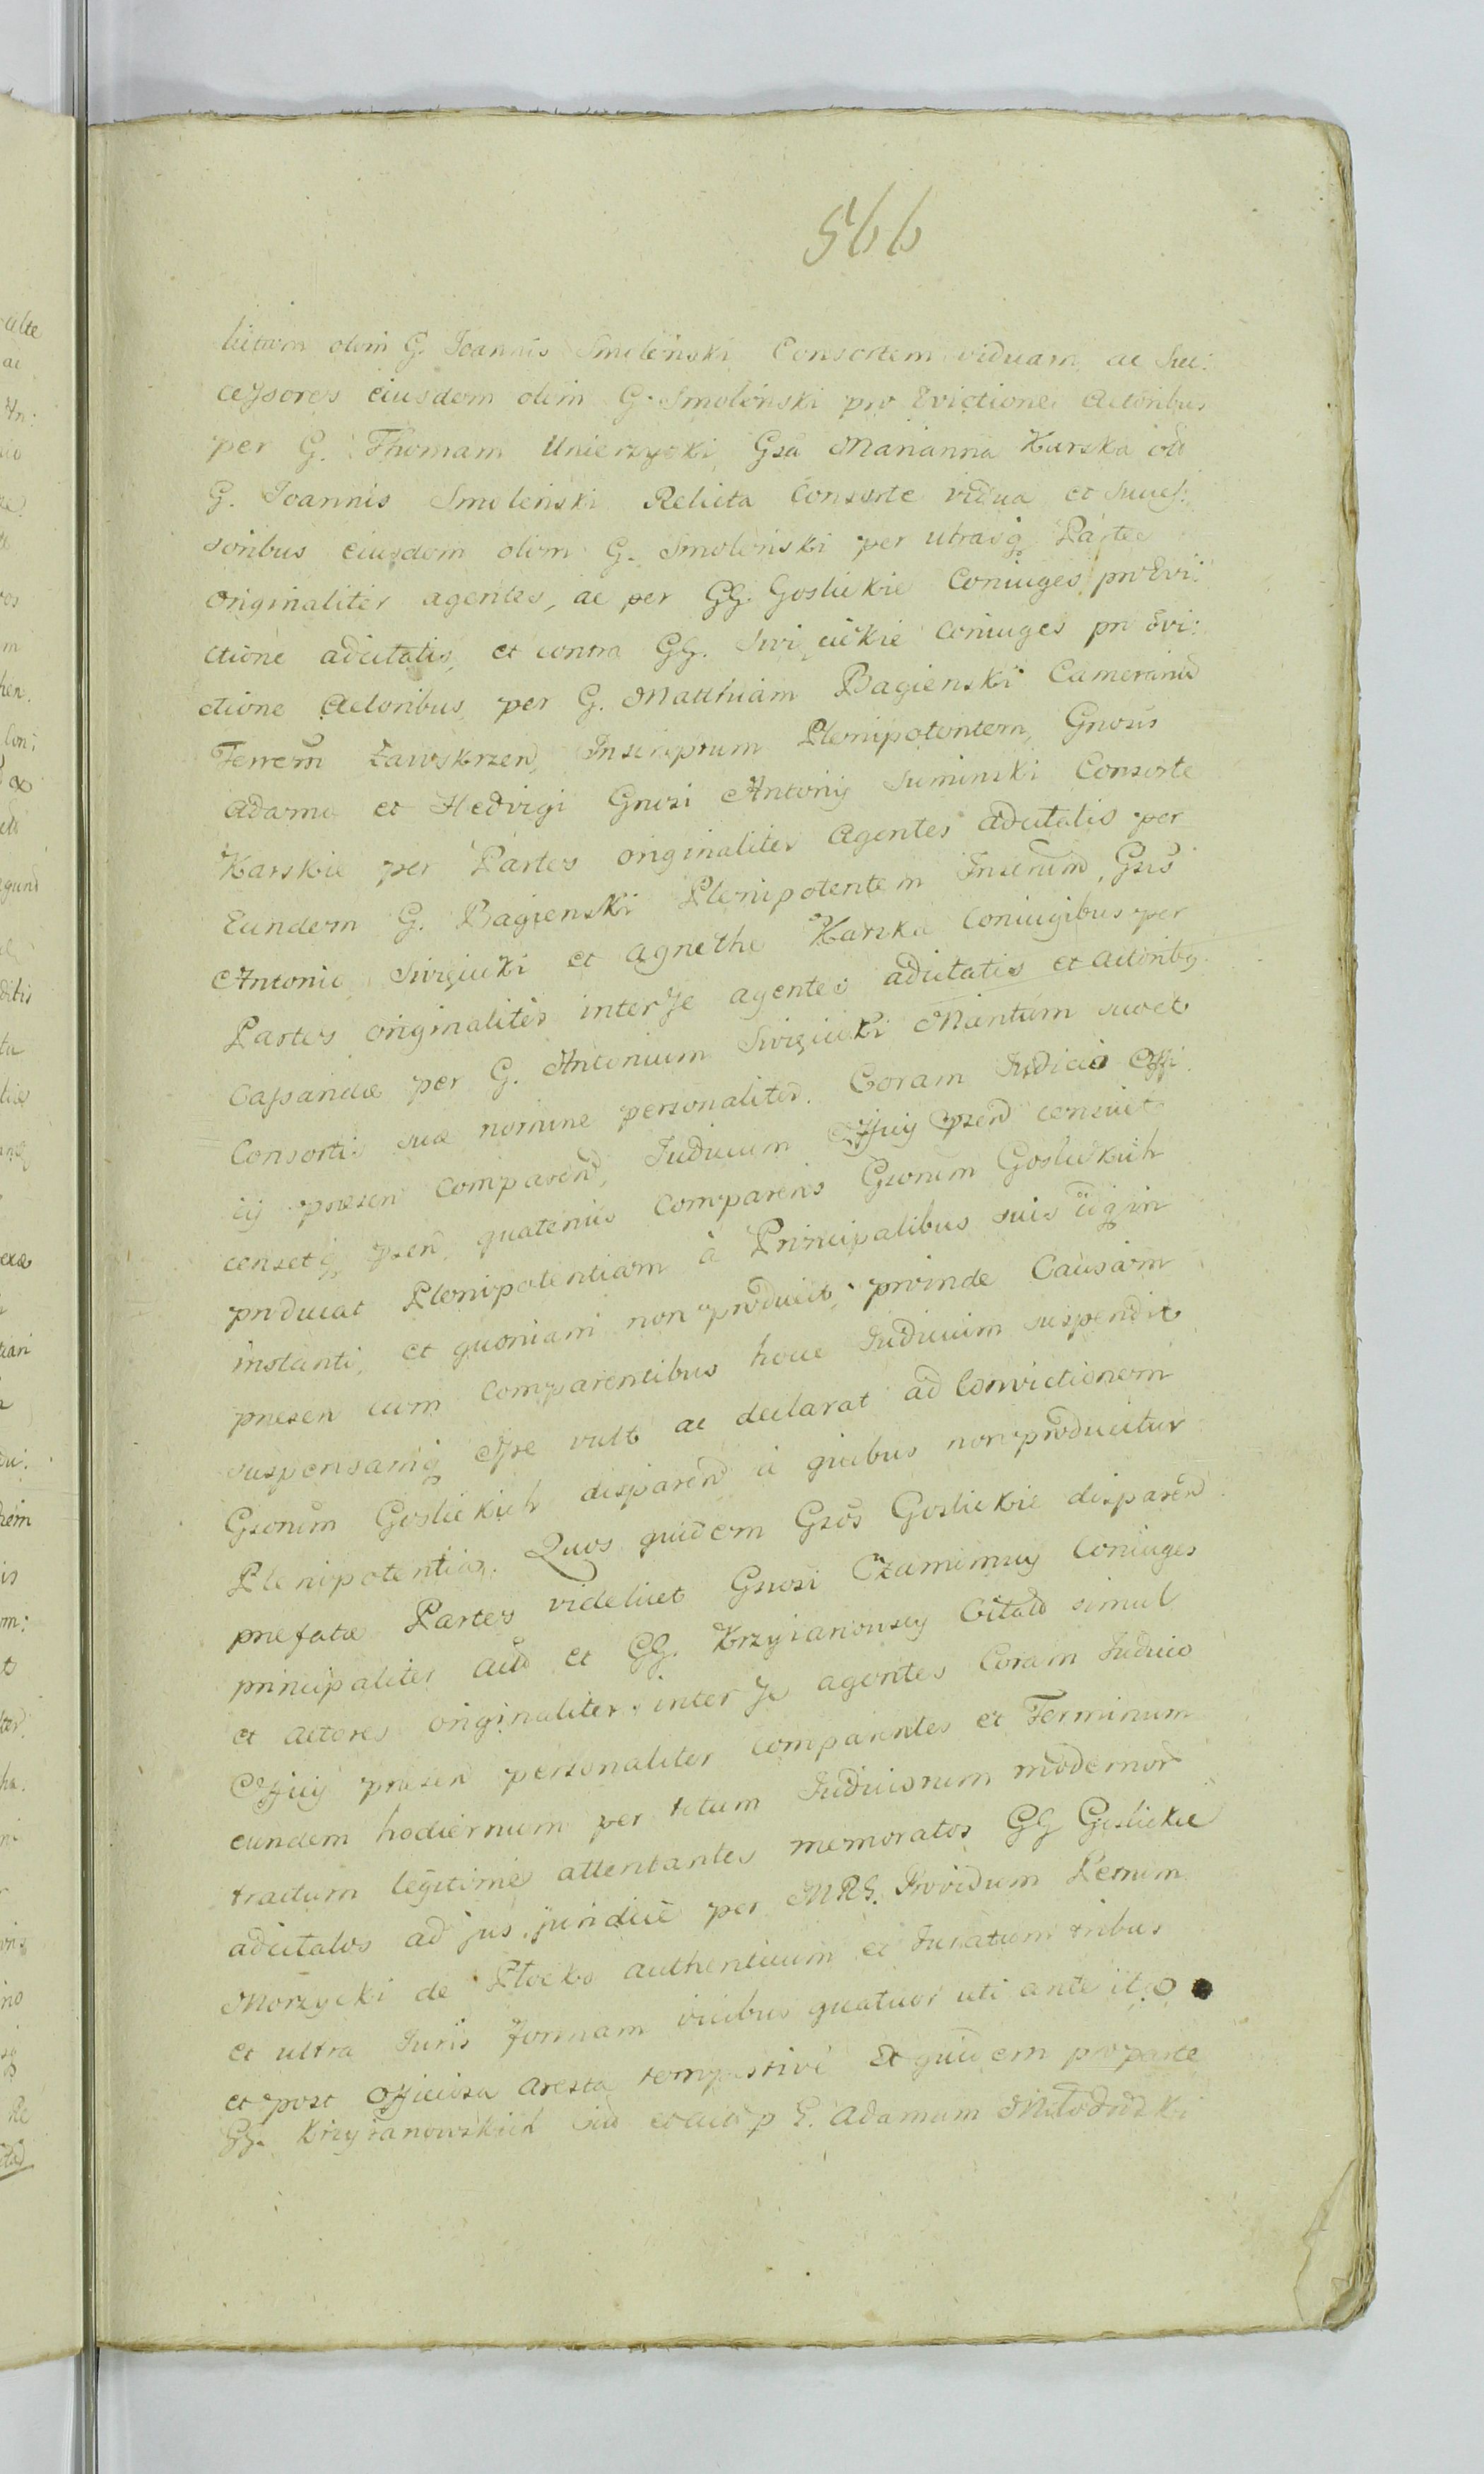 566
lictam olim G. Joannis Smoleński Consortem viduam ac Suc:
cessores eiusdem olim G. Smoleński pro Evictione Actoribus
per G. Thomam Unierzycki, Gsa Marianna Karska olim
G. Joannis Smoleński Relicta Consorte vidua et Succes:
soribus eiusdem olim G. Smoleński per utrasq Partes
originaliter agentes, ac per GG. Goslickie Coniuges pro Evi:
ctione adcitatis, et contra GG. Swięcickie Coniuges pro Evi:
ctione Actoribus per G. Matthiam Bagienski Camerarium
Terrem Zawskrzen, Inscriptum Plenipotentem, Gnosis
Adamo et Hedvigi Gnosi Antonij Suminski Consorte
Karskie per Partes originaliter Agentes adcitatis per
Eundem G. Bagienski Plenipotentem Inscrium, Gsis
Antonio Swięcicki et Agnethe Karska Coniugibus per
Partes originaliter inter se agentes adcitatis et actoribq.
Cassandae per G. Antonium Swięcicki Maritum suo et
Consortis suae nomine personaliter. Coram Judicio Offi
cij presen comparend, Judicium Officij psend censuit
censetq psen, quatenus Comparens Gsorum Goslickich
producat Plenipotentiam à Principalibus suis idq in
instanti, et quoniam non producit, proinde Causam
presen cum Comparentibus hocce Judicium suspendit
suspensamq esse vult ac declarat ad Convictionem
Gsorum Goslickich disparend a quibus non producitur
Plenipotentia. Quos quidem Gsos Goslickie disparend
prefatae Partes videlicet Gnosi Czaminscy Coniuges
principaliter act et GG. Krzyżanowscy Citati simul
et actores originaliter inter se agentes Coram Judicio
Officij presen personaliter Comparentes et Terminum
eundem hodiernum per totum Judiciorum modernor
tractum legitime attentantes memoratos GG Goslickie
adcitatos ad jus juridice per MRS. Providum Petrum
Morzycki de Plocko authenticum et Juratum tribus
et ultra Juris formam vicibus quatuor uti ante ita
et post Officiosa Aresta tempestive et quidem pro parte
GG. Krzyżanowskich p G. Adamum